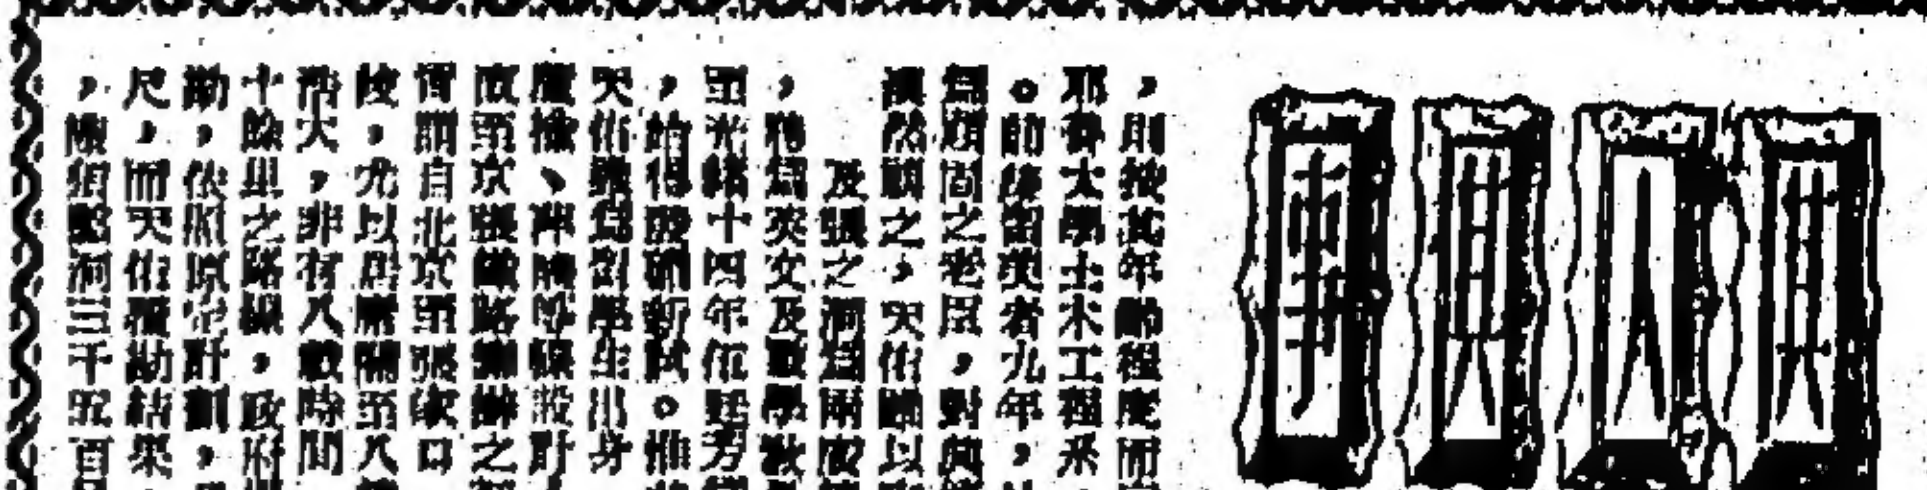 其人其事
，則按其年齡程度而
耶魯大學土木工程系
。前後留美者九年，
為頑固之老臣，對與
漠然視之，天佑歸以
及張之洞為兩廣
，聘為英文及數學教
至光緒十四年伍廷芳
，始得發硎新試。惟
天佑雖為留學生出身
、萍醴等線設計
故至京張鐵路創辦之
嘗謂自北京至張家口
峻，尤以居庸關至八
浩大，非有人數時間
十餘里之路線，政府
勘，依照原定計劃，
尺，而天佑覆勘結果
，須鑿洞三千五百